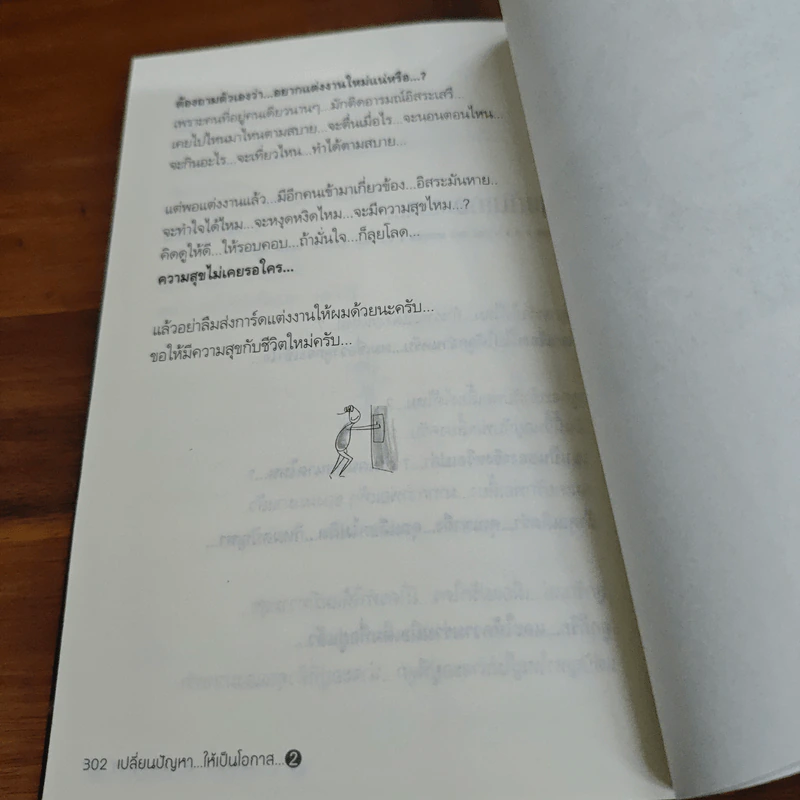 ต้องถามตัวเองว่า...อยากแต่งงานใหม่แน่หรือ...?
เพราะคนที่อยู่คนเดียวนานๆ...มักติดอารมณ์อิสระเสรี...
เคยไปไหนมาไหนตามสบาย...จะตื่นเมื่อไร...จะนอนตอนไหน...
จะกินอะไร...จะเที่ยวไหน...ทำได้ตามสบาย...
แต่พอแต่งงานแล้ว...มีอีกคนเข้ามาเกี่ยวข้อง...อิสระมันหาย..
จะทำใจได้ไหม...จะหงุดหงิดไหม...จะมีความสุขไหม...?
คิดดูให้ดี...ให้รอบคอบ...ถ้ามั่นใจ...ก็ลุยโลด...
ความสุขไม่เคยรอใคร...
แล้วอย่าลืมส่งการ์ดแต่งงานให้ผมด้วยนะครับ...
ขอให้มีความสุขกับชีวิตใหม่ครับ...
302 เปลี่ยนปัญหา...ให้เป็นโอกาส...2